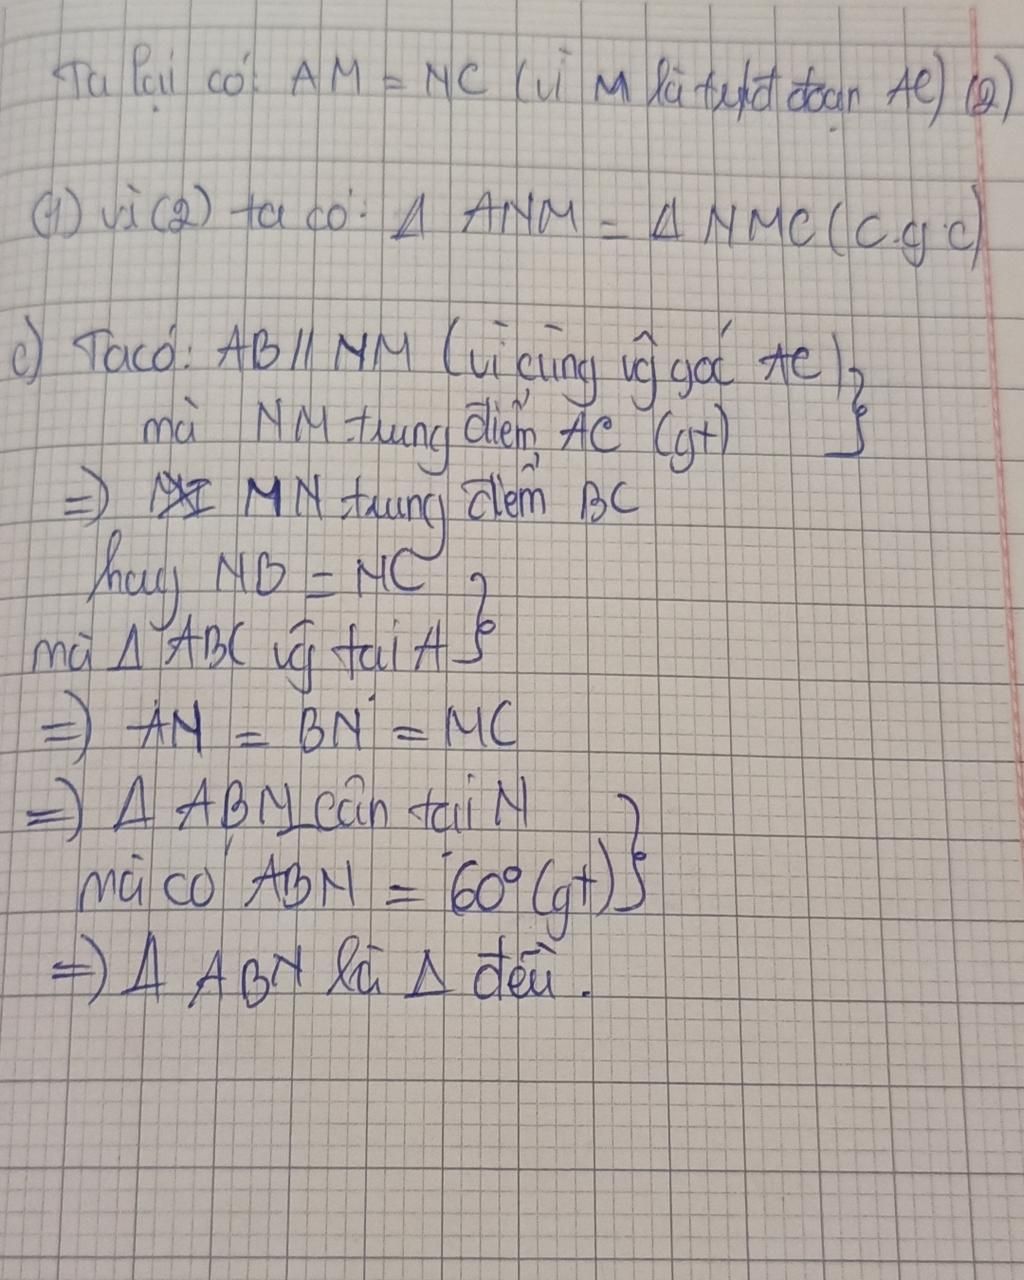 Ta lại có AM = MC (vì M là tđ đoạn AC) (2)
(1) vì (2) ta có: Δ ANM = Δ NMC (c.g.c)
c) Ta có: AB // NM (vì cùng vg góc AC)
mà NM trung điểm AC (gt)
=) MN trung điểm BC
hay NB = NC
mà Δ ABC vg tại A
=) AN = BN = NC
=) Δ ABN cân tại N
mà có ABN = 60° (gt)
=) Δ ABN là Δ đều.